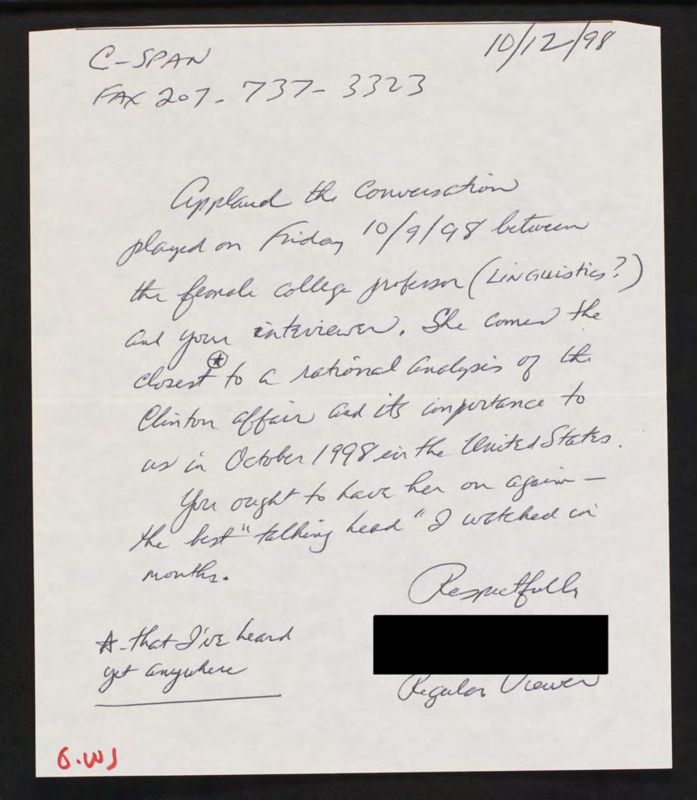 C-SPAN
10/12/98
FAX 207-737-3323
Applaud the conversation
played on Friday 10/9/98 between
the female college professor (Linguistics?)
and your interviewer. She comes the
closest ⍟ to a rational analysis of the
Clinton affair and its importance to
us in October 1998 in the United States.
You ought to have her on again —
the best "talking head" I watched in
months.
Respectfully
Regular Viewer
★ - that I've heard
yet anywhere
G.WJ